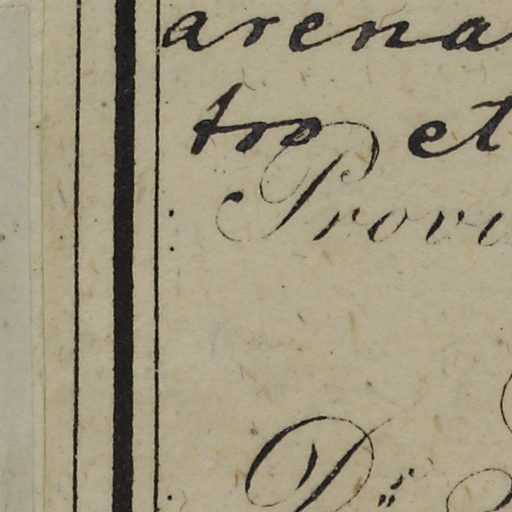 arena
tro et
Provi
Dr.